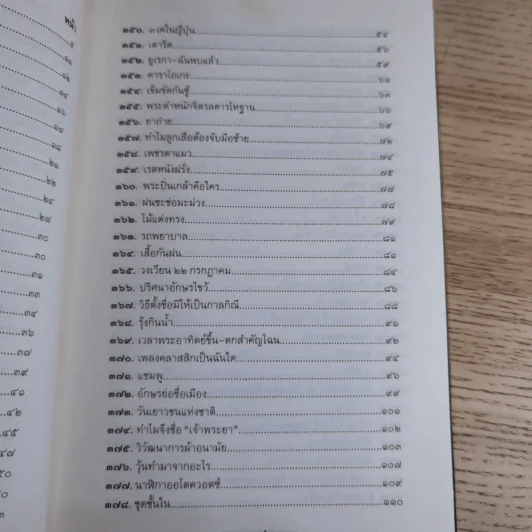 หน้า
๑๕๐. ๓ เคในญี่ปุ่น ๕๔
๑๕๑. เตารีด ๕๖
๑๕๒. ยูเรกา-ฉันพบแล้ว ๕๙
๑๕๓. คาราโอเกะ ๖๑
๑๕๔. เข็มขัดกันชู้ ๖๓
๑๕๕. พระตำหนักจิตรลดารโหฐาน ๖๖
๑๕๖. ยาถ่าย ๖๙
๑๕๗. ทำไมลูกเสือต้องจับมือซ้าย ๗๒
๑๕๘. เพชรตาแมว ๗๔
๑๕๙. เรตหนังฝรั่ง ๗๕
๑๖๐. พระปิ่นเกล้าคือใคร ๗๗
๑๖๑. ฝนชะช่อมะม่วง ๗๘
๑๖๒. ไม้แต่งทรง ๗๙
๑๖๓. รถพยาบาล ๘๑
๑๖๔. เสื้อกันฝน ๘๑
๑๖๕. วงเวียน ๒๒ กรกฎาคม ๘๔
๑๖๖. ปริศนาอักษรไขว้ ๘๖
๑๖๗. วิธีตั้งชื่อมิให้เป็นกาลกิณี ๘๘
๑๖๘. รุ้งกินน้ำ ๙๑
๑๖๙. เวลาพระอาทิตย์ขึ้น-ตกสำคัญไฉน ๙๒
๑๗๐. เพลงคลาสสิกเป็นฉันใด ๙๔
๑๗๑. แชมพู ๙๖
๑๗๒. อักษรย่อชื่อเมือง ๙๙
๑๗๓. วันเยาวชนแห่งชาติ ๑๐๑
๑๗๔. ทำไมจึงชื่อ “เจ้าพระยา” ๑๐๒
๑๗๕. วิวัฒนาการผ้าอนามัย ๑๐๓
๑๗๖. วุ้นทำมาจากอะไร ๑๐๗
๑๗๗. นาฬิกาออโตควอตซ์ ๑๐๙
๑๗๘. ชุดชั้นใน ๑๑๐